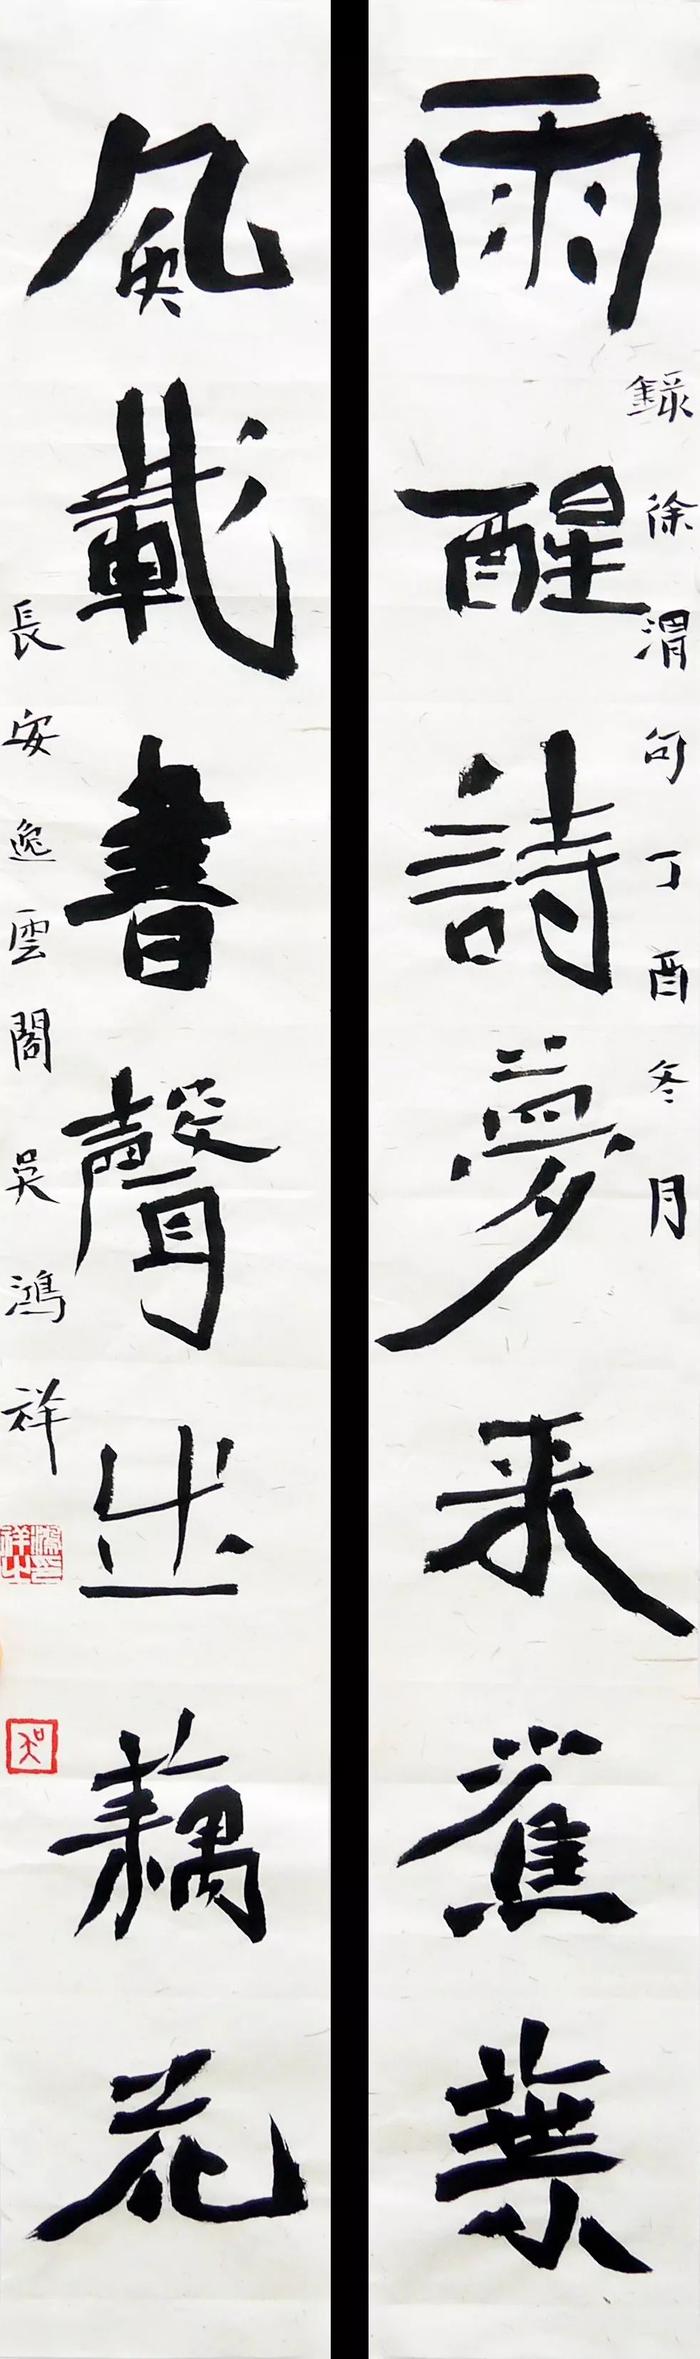 雨醒詩夢来蕉葉
錄徐渭句丁酉冬月
風載書聲出藕花
長安逸雲閣吳鴻祥
鴻祥之印